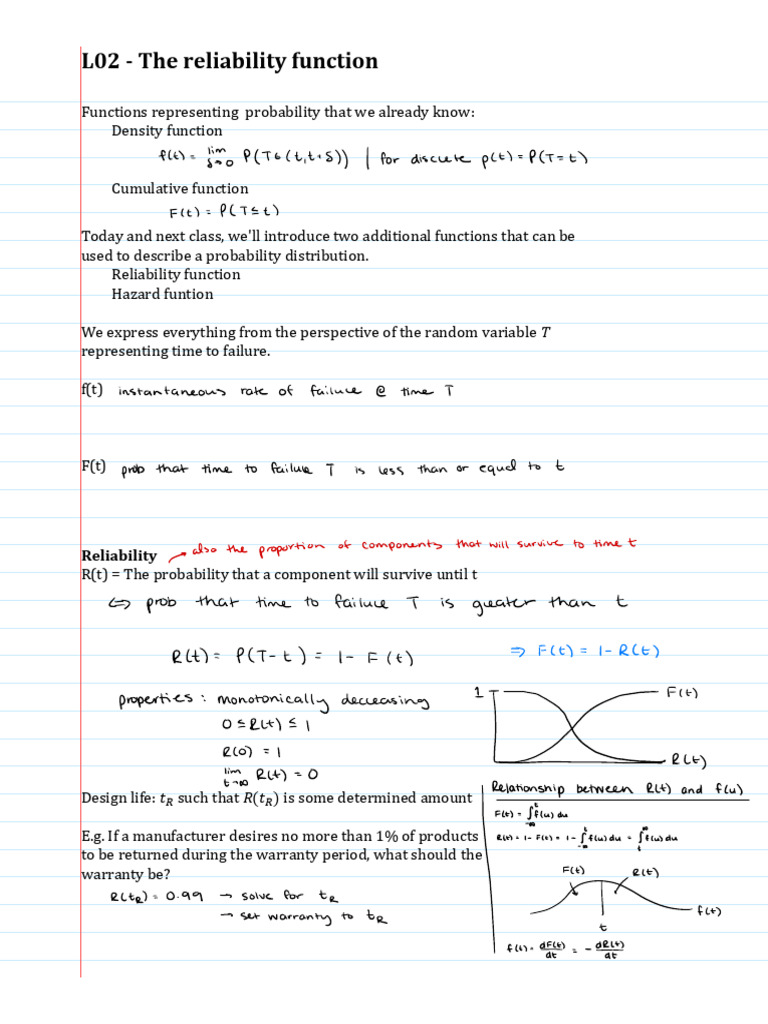 L02 - The reliability function
Functions representing probability that we already know:
Density function
f(t) = lim δ→0 P(T∈(t,t+δ)) | for discrete p(t) = P(T=t)
Cumulative function
F(t) = P(T≤t)
Today and next class, we'll introduce two additional functions that can be
used to describe a probability distribution.
Reliability function
Hazard funtion
We express everything from the perspective of the random variable T
representing time to failure.
f(t) instantaneous rate of failure @ time T
F(t) prob that time to failure T is less than or equal to t
Reliability → also the proportion of components that will survive to time t
R(t) = The probability that a component will survive until t
⇔ prob that time to failure T is greater than t
R(t) = P(T-t) = 1- F(t) ⇒ F(t) = 1-R(t)
properties: monotonically decreasing
0≤R(t)≤1
R(0) = 1
lim t→∞ R(t) = 0
1 F(t)
R(t)
Design life: t_R such that R(t_R) is some determined amount
E.g. If a manufacturer desires no more than 1% of products
to be returned during the warranty period, what should the
warranty be?
R(t_R) = 0.99 → solve for t_R
→ set warranty to t_R
Relationship between R(t) and f(u)
F(t) = ∫_{-∞}^{t} f(u)du
R(t) = 1- F(t) = 1- ∫_{-∞}^{t} f(u)du = ∫_{t}^{∞} f(u)du
F(t) R(t)
f(t)
t
f(t) = dF(t)/dt = - dR(t)/dt